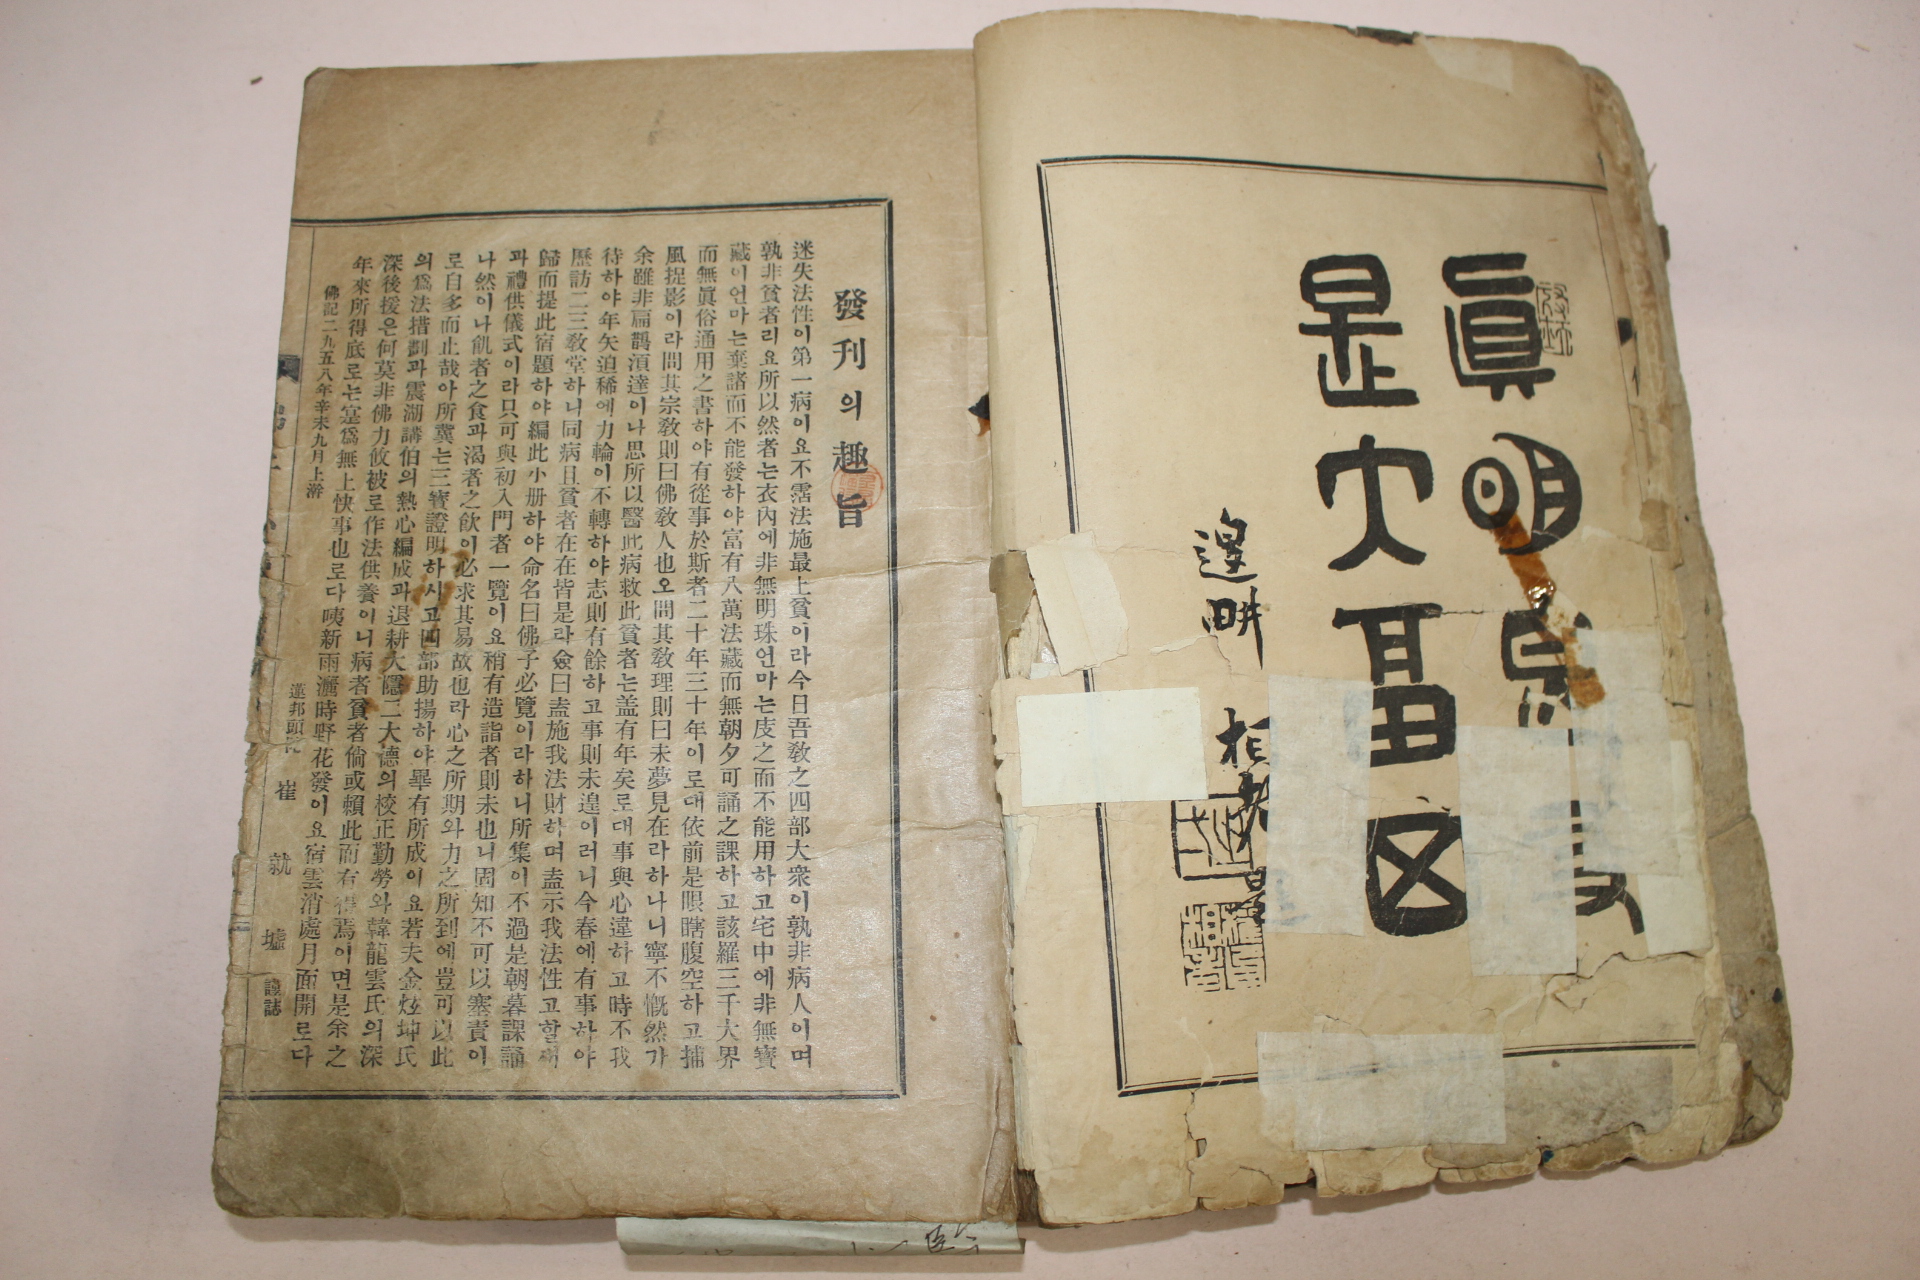 眞明
是大畐
退畊 相老
發刊의趣旨
迷失法性이第一病이요不霑法施最上貧이라今日吾敎之四部大衆이孰非病人이며
孰非貧者리요所以然者는衣內에非無明珠언마는皮之而不能用하고宅中에非無寶
藏이언마는棄諸而不能發하야富有八萬法藏而無朝夕可誦之課하고該羅三千大界
而無眞俗通用之書하야有從事於斯者二十年三十年이로대依前是眼瞎腹空하고捕
風捉影이라問其宗敎則曰佛敎人也오問其敎理則曰未夢見在라하나니寧不慨然가
余雖非扁鵲須達이나思所以醫此病救此貧者는盖有年矣로대事與心違하고時不我
待하야年矢迫稀에力輪이不轉하야志則有餘하고事則未遑이러니今春에有事하야
歷訪二三敎堂하니同病且貧者在在皆是라僉曰盍施我法財하며盍示我法性고할
歸而提此宿題하야編此小册하야命名曰佛子必覽이라하니所集이不過是朝暮課誦
과禮供儀式이라只可與初入門者一覽이요稍有造詣者則未也니固知不可以塞責이
나然이나飢者之食과渴者之飮이必求其易故也라心之所期와力之所到에豈可以此
로自多而止哉아所冀는三寶證明하시고四部助揚하야畢有所成이요若夫金炫坤氏
의爲法措劃과震湖講伯의熱心編成과退耕大隱二大德의校正勤勞와韓龍雲氏의深
深後援은何莫非佛力攸被로作法供養이니病者貧者倘或賴此而有得焉이면是余之
年來所得底로는寔爲無上快事也로다咦新雨灑時野花發이요宿雲消處月面開로다
佛記二九五八年辛未九月上澣
蓮邦頭陀 崔就墟 謹誌